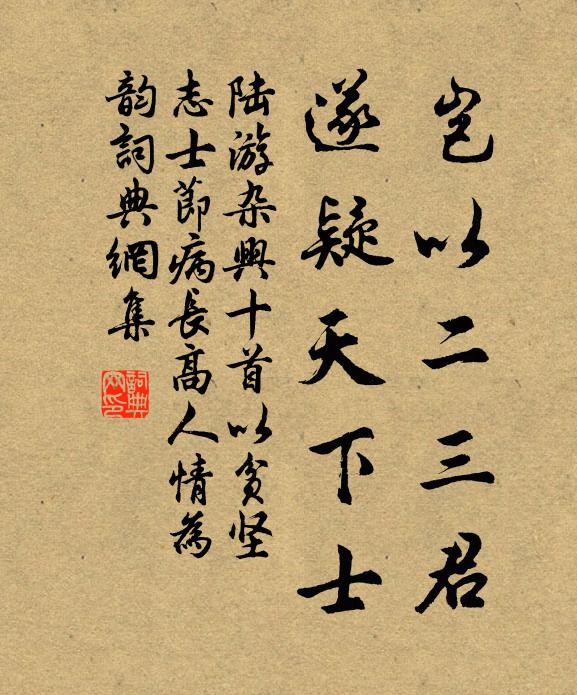 豈以二三君
遂疑天下士
陸游杂興十首以貧坚
志士節病長高人情為
韵詞典網集
詞典
网印